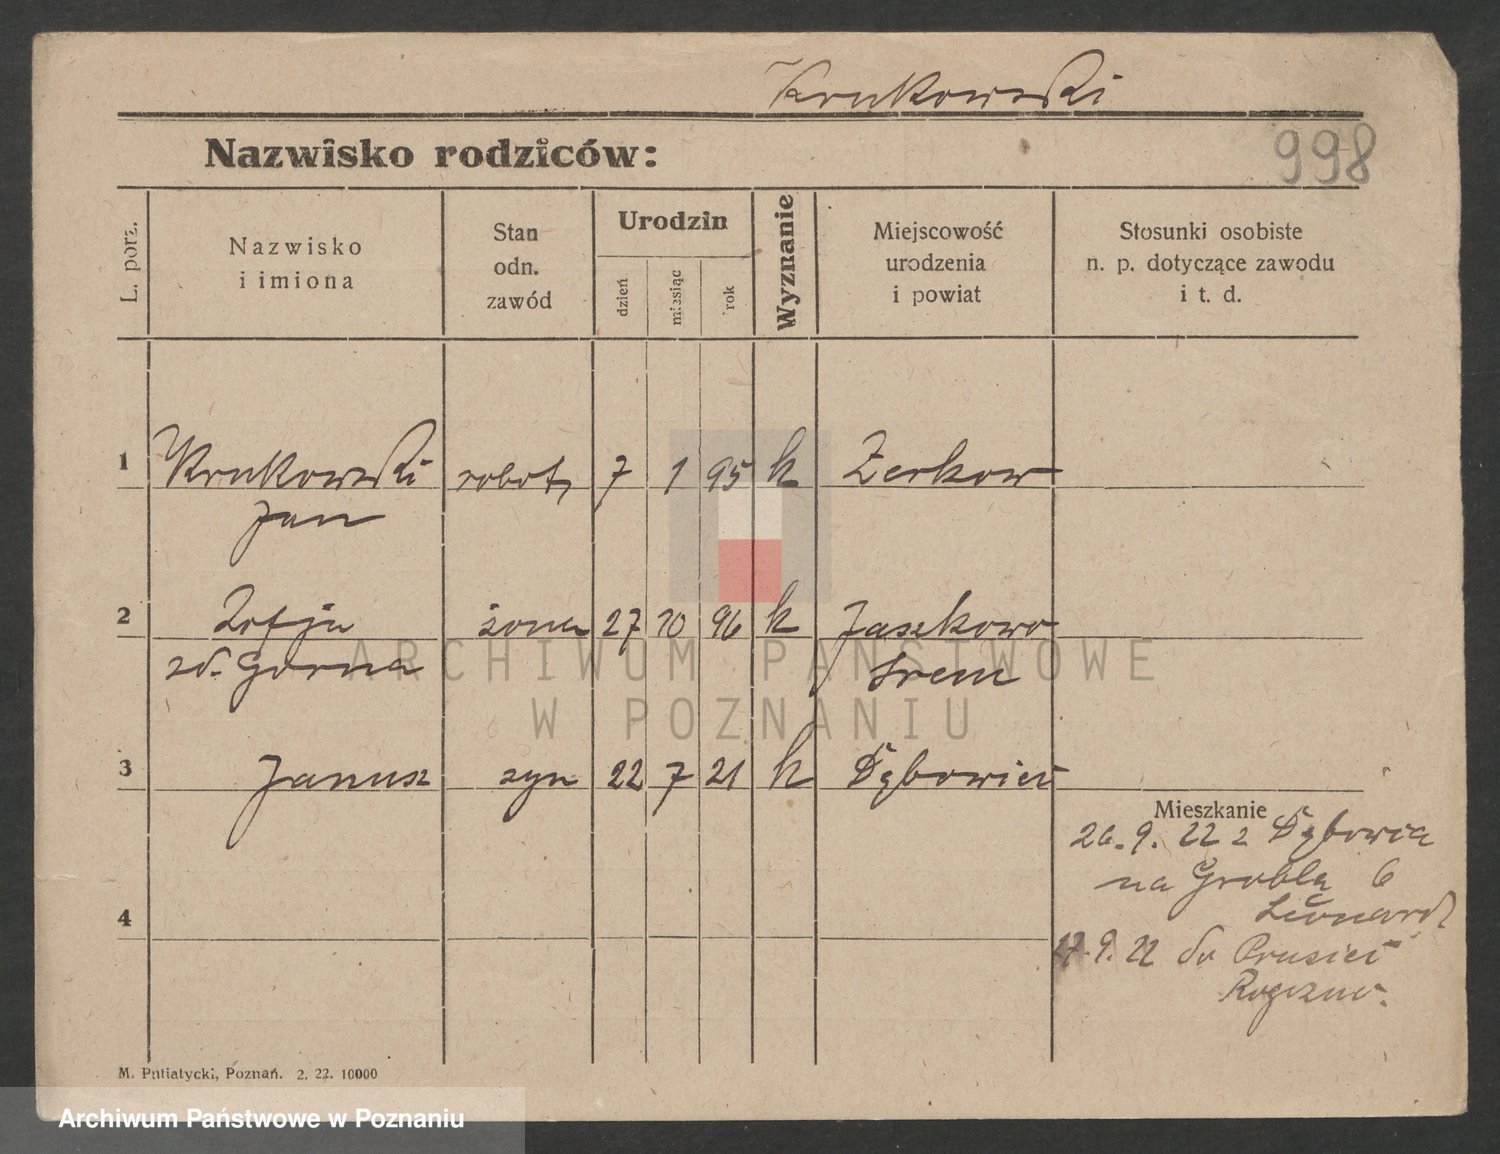 Krukowski
998
Nazwisko rodziców:
L. porz.
Nazwisko
i imiona
Stan
odn.
zawód
Urodzin
dzień
miesiąc
rok
Wyznanie
Miejscowość
urodzenia
i powiat
Stosunki osobiste
n. p. dotyczące zawodu
i t. d.
1 Krukowski robot. 7 1 95 k Zerkow
Jan
2 Zofja żona 27 10 96 k Jaszkowo
zd. Gorna Srem
3 Janusz syn 22 7 21 k Dębowiec
Mieszkanie
26. 9. 22 z Dębowca
na Groblę 6
Leonard
4
9. 22 do Prusiec
Rogozno.
M. Putiatycki, Poznań. 2. 22. 10000
ARCHIWUM PAŃSTWOWE
W POZNANIU
Archiwum Państwowe w Poznaniu